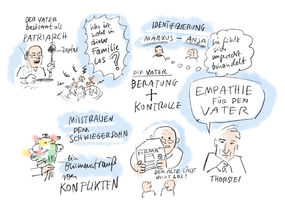 DER VATER
bestimmt als
PATRIARCH
Zepter
Was ist
wohl in
dieser
Familie
los?
IDENTIFIZIERUNG
MARKUS – ANJA
sie fühlt
sich
ungerecht
behandelt
DER VATER
BERATUNG
+
KONTROLLE
EMPATHIE
FÜR DEN
VATER
MISSTRAUEN
DEM
SCHWIEGERSOHN
ein
Blumenstrauß
von
KONFLIKTEN
DER ALTE LÄSST
NICHT LOS!
THORSTEN